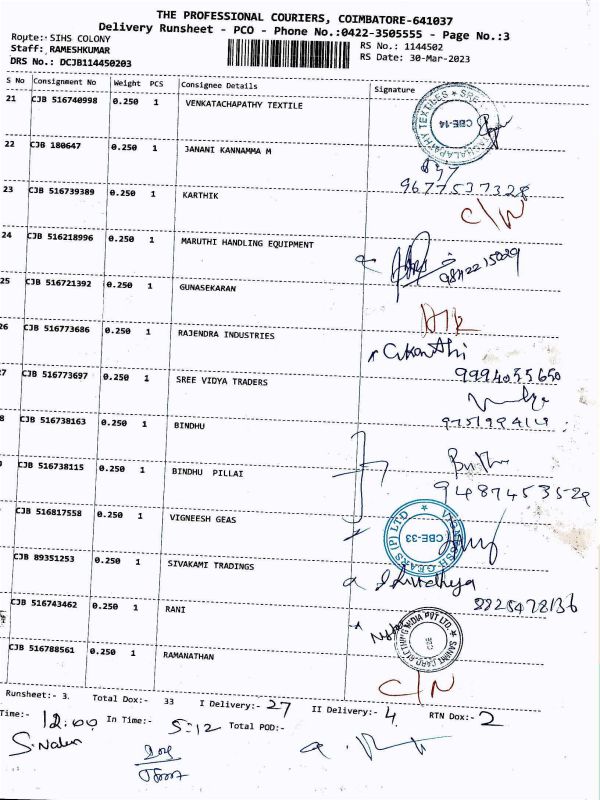 THE PROFESSIONAL COURIERS, COIMBATORE-641037
Delivery Runsheet - PCO - Phone No.:0422-3505555 - Page No.:3
Route:- SIHS COLONY
RS No.: 1144502
Staff: RAMESHKUMAR
RS Date: 30-Mar-2023
DRS No.: DCJB114450203
S No Consignment No Weight PCS Consignee Details Signature
21 CJB 516740998 0.250 1 VENKATACHAPATHY TEXTILE
CBE-14
22 CJB 180647 0.250 1 JANANI KANNAMMA M
9677537328
23 CJB 516739389 0.250 1 KARTHIK
C/N
24 CJB 516218996 0.250 1 MARUTHI HANDLING EQUIPMENT
25 CJB 516721392 0.250 1 GUNASEKARAN
26 CJB 516773686 0.250 1 RAJENDRA INDUSTRIES
9994055650
27 CJB 516773697 0.250 1 SREE VIDYA TRADERS
8 CJB 516738163 0.250 1 BINDHU
CJB 516738115 0.250 1 BINDHU PILLAI
9487453529
CJB 516817558 0.250 1 VIGNEESH GEAS
VIGNEESH GEARS (P) LTD
CBE-33
CJB 89351253 0.250 1 SIVAKAMI TRADINGS
CJB 516743462 0.250 1 RANI
CBE
CJB 516788561 0.250 1 RAMANATHAN
C/N
Runsheet:- 3. Total Dox:- 33 I Delivery:- 27 II Delivery:- 4 RTN Dox:- 2
Time:- 12:00 In Time:- 5:12 Total POD:-